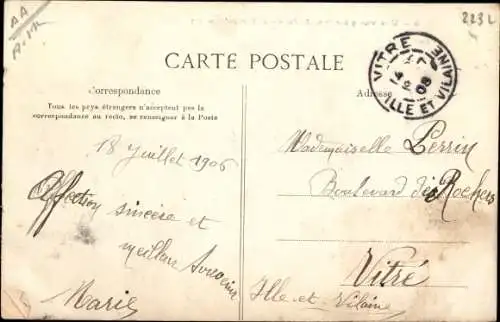 AA
223L
CARTE POSTALE
VITRE
ILLE ET VILAINE
Correspondance
Tous les pays étrangers n'acceptent pas la
correspondance au recto, se renseigner à la Poste
Adresse
18 Juillet 1906
Affection
sincère et
meilleur Souvenir
Marie
Mademoiselle Perrin
Boulevard des Rochers
Vitré
Ille-et-Vilaine